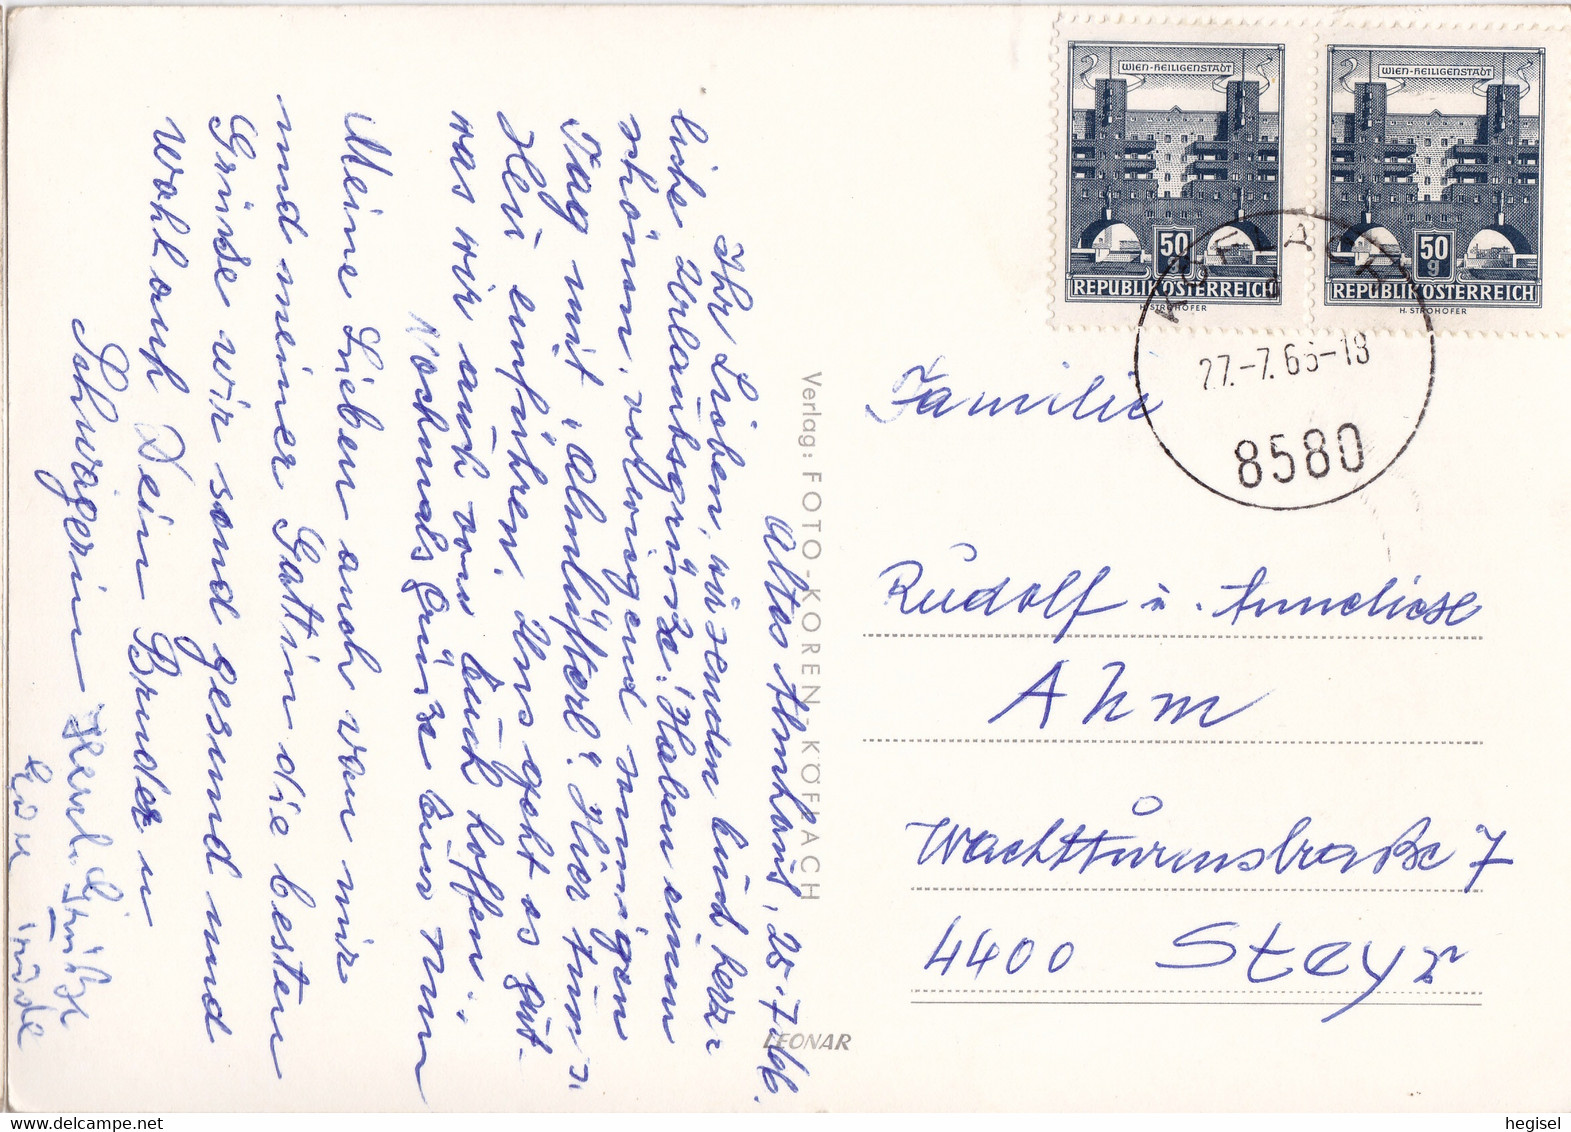 Altes Almhaus, 25.7.66.
Ihr Lieben, wir senden Euch herz-
liche Urlaubsgrüße! Haben einen
schönen, vorwiegend sonnigen
Tag mit "Almlüfterl". Hier tun
Heu einführen. Uns geht es gut-
was wir auch von Euch hoffen.
Nochmals Grüße Eur
Meine Lieben auch von mir
und meiner Gattin die besten
Grüße wir sind gesund und
wohlauf Dein Bruder u
Schwägerin
Herzl. Grüße
Verlag: FOTO-KOREN-KÖFLACH
LEONAR
WIEN-HEILIGENSTADT
50
g
REPUBLIK ÖSTERREICH
H. STROHOFER
WIEN-HEILIGENSTADT
50
g
REPUBLIK ÖSTERREICH
H. STROHOFER
KÖFLACH
27.-7.66-18
8580
Familie
Rudolf u. Anneliese
Ahm
Wachtturmstraße 7
4400 Steyr
hegisel